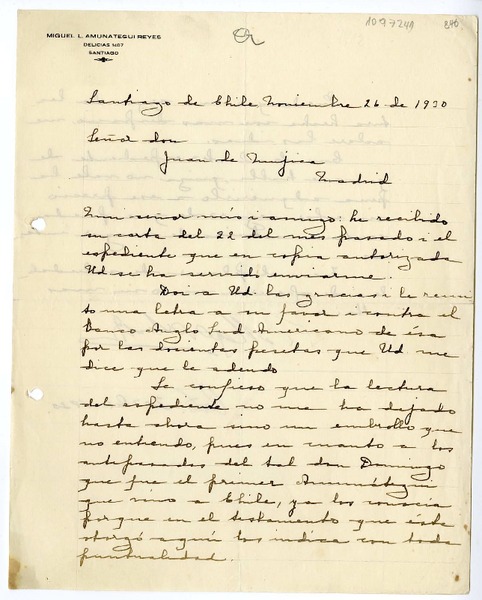 1097249
890
MIGUEL L. AMUNATEGUI REYES
DELICIAS 1467
SANTIAGO
Santiago de Chile Noviembre 26 de 1930
Señor don
Juan de Mujica
Madrid
Mui señor mío i amigo: he recibido
su carta del 22 del mes pasado i el
espediente que en copia autorizada
Ud se ha servido enviarme.
Doi a Ud las gracias i le remi-
to una letra a su favor i contra el
Banco Anglo Sud Americano de ésa
por las doscientas pesetas que Ud me
dice que le adeudo
Le confieso que la lectura
del espediente no me ha dejado
hasta ahora sino un embrollo que
no entiendo, pues en cuanto a los
antepasados del tal don Domingo
que fue el primer Amunátegui
que vino a Chile, ya los conocía
porque en el testamento que este
otorgó aquí los indica con toda
puntualidad.